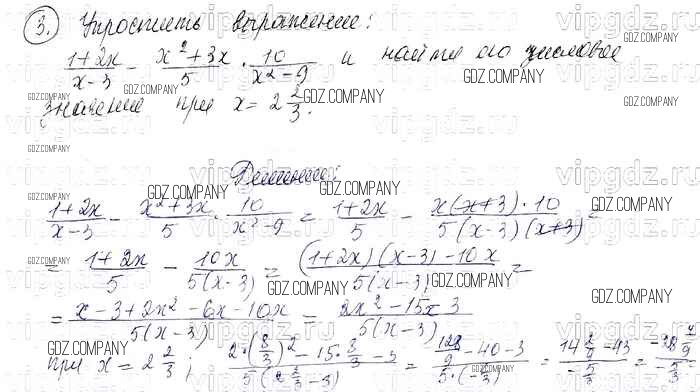 3. Упростить выражение:
(1+2x)/(x-3) - (x²+3x)/5 · 10/(x²-9) и найти его числовое
значение при x = 2 2/3.
Решение:
(1+2x)/(x-3) - (x²+3x)/5 · 10/(x²-9) = (1+2x)/5 - (x(x+3)·10)/(5(x-3)(x+3)) =
= (1+2x)/5 - 10x/(5(x-3)) = ((1+2x)(x-3)-10x)/(5(x-3)) =
= (x-3+2x²-6x-10x)/(5(x-3)) = (2x²-15x-3)/(5(x-3))
при x = 2 2/3; (2·(8/3)²-15·8/3-3)/(5(2 2/3-3)) = (128/9-40-3)/(5·(-3)) = (14 2/9-43)/(-5/3) =
GDZ.COMPANY
vipgdz.ru